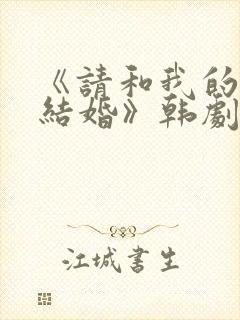 《請和我的
結婚》韩劇
江城書生